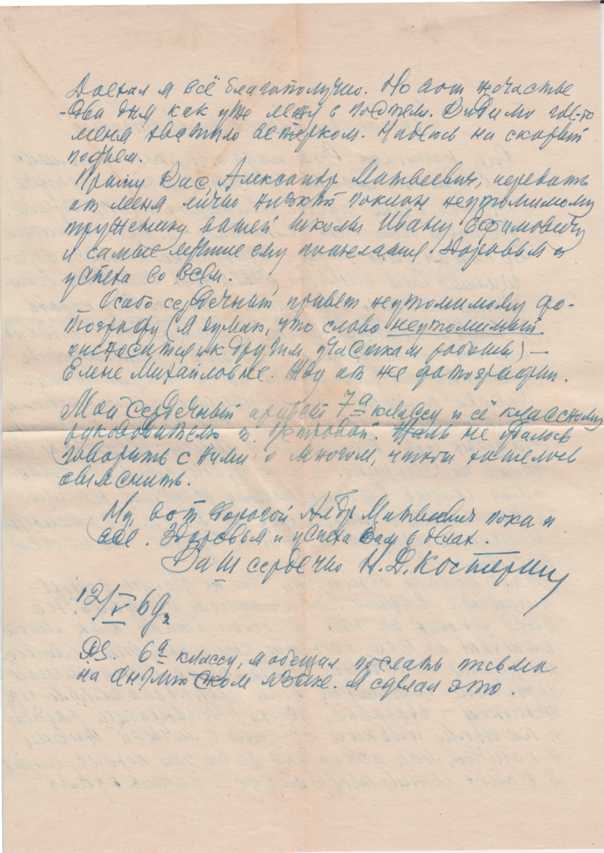 Доехал я всё благополучно. Но вот несчастье
- два дня как уже лежу в постели. Видимо где-то
меня хватило ветерком. Надеюсь на скорый
подъем.
Прошу Вас, Александр Матвеевич, передать
от меня лично низкий поклон неутомимому
труженику вашей школы Ивану Ефимовичу
и самые лучшие ему пожелания здоровья и
успеха во всем.
Особо сердечный привет неутомимому фо-
тографу (я думаю, что слово неутомимый
относится и к другим участкам работы) —
Елене Михайловне. Жду от же фотографии.
Мой сердечный привет 7а классу и её классному
руководителю т. Петровой. Жаль не удалось
говорить с ними о многом, что хотелось
выяснить.
Ну вот дорогой Алдр Матвеевич пока и
всё. Здоровья и успеха Вам в делах.
Ваш сердечно Н. Д. Костерин
12/V 69г
PS. 6а классу, я обещал послать письма
на английском языке. Я сделал это.